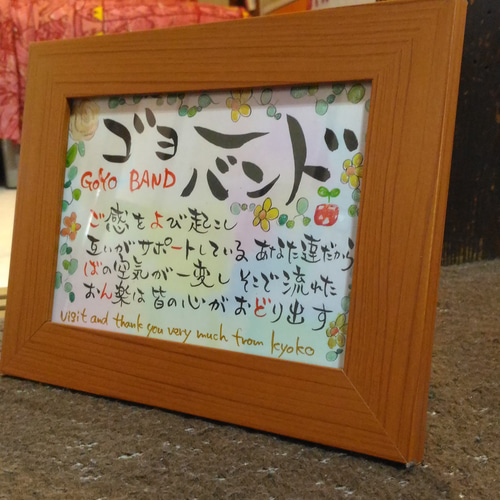 ゴヨーバンド
GOYO BAND
ご感をよび起こし
互いがサポートしている あなた達だから
ばの空気が一変し そこで流れた
おん楽は皆の心がおどり出す
visit and thank you very much from kyoko